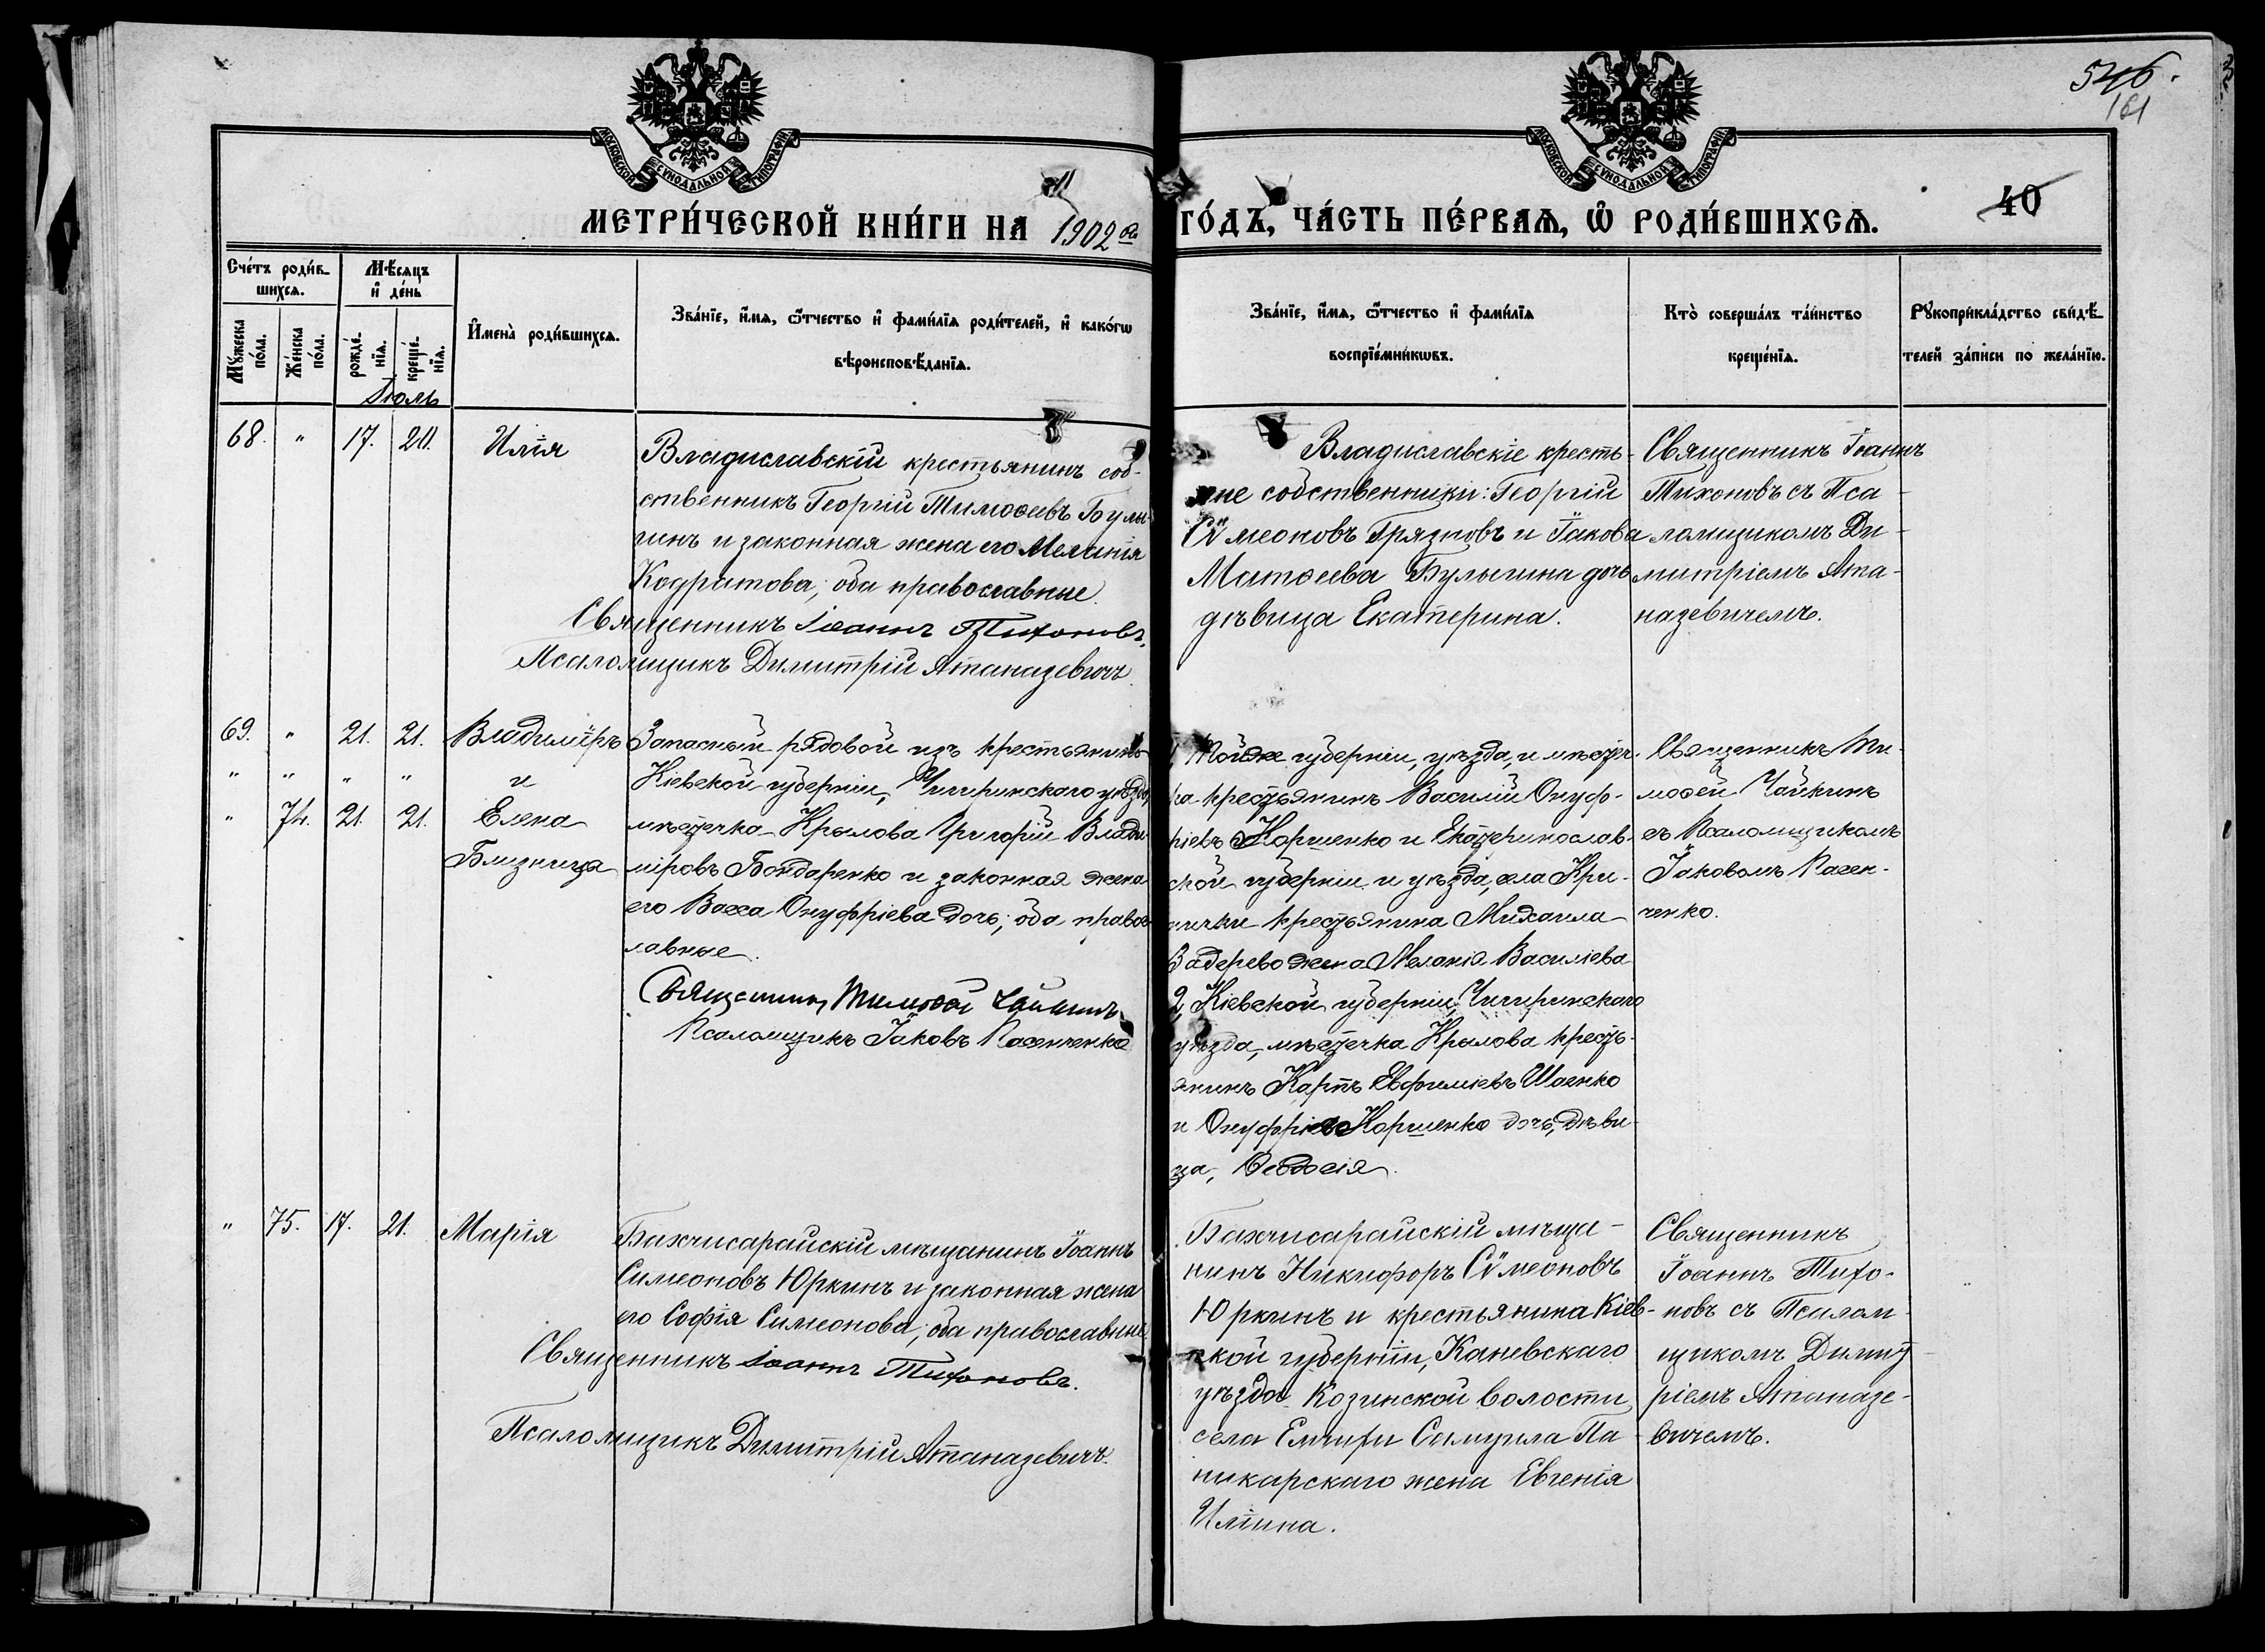 546.
161
МОСКОВСКОЙ СУНОДАЛЬНОЙ ТИПОГРАФІИ
МОСКОВСКОЙ СУНОДАЛЬНОЙ ТИПОГРАФІИ
МЕТРИ́ЧЕСКОЙ КНИ́ГИ НА 1902й ГО́ДЪ, ЧА́СТЬ ПЕ́РВАѦ, Ѡ РОДИ́ВШИХСѦ. 40
Сче́тъ роди́в-
шихсѧ.
Мꙋ́жеска по́ла.
Же́нска по́ла.
Мѣ́сѧцъ и҆ де́нь
рожде́-нїѧ.
креще́-нїѧ.
И҆мена̀ роди́вшихсѧ.
Зва́нїе, и҆́мѧ, ѻ҆́тчество и҆ фами́лїѧ роди́телей, и҆ како́гѡ
вѣроисповѣ́данїѧ.
Зва́нїе, и҆́мѧ, ѻ҆́тчество и҆ фами́лїѧ
воспрїе́мникѡвъ.
Кто̀ соверша́лъ та́инство
креще́нїѧ.
Рꙋкоприкла́дство свидѣ́-
телей за́писи по жела́нїю.
Іюль
68. " 17. 20. Илія
Владиславскій крестьянинъ соб-
ственникъ Георгій Тимоѳеевъ Булы-
гинъ и законная жена его Меланія
Кодратова; оба православные.
Священникъ Іоаннъ Тихоновъ.
Псаломщикъ Димитрій Атаназевичъ.
Владиславскіе кресть-
яне собственники: Георгій
Сѵмеоновъ Грязновъ и Іакова
Матѳеева Булыгина дочь
дѣвица Екатерина.
Священникъ Іоаннъ
Тихоновъ съ Пса-
ломщикомъ Ди-
митріемъ Ата-
назевичемъ.
69. " 21. 21. Владиміръ
" " " " и
" 74. 21. 21. Елена
Близнеца
Запасный рядовой изъ крестьянинъ
Кіевской губерніи, Чигиринскаго уѣзда,
мѣстечка Крылова Григорій Влади-
міровъ Бондаренко и законная жена
его Васса Онуфріева дочь; оба правос-
лавные.
Священникъ Тимоѳей Чайкинъ
Псаломщикъ Іаковъ Пасенченко
1, Тойже губерніи, уѣзда, и мѣстеч-
ка крестьянинъ Василій Онуф-
ріевъ Коршенко и Екатеринослав-
ской губерніи и уѣзда, села Кри-
нички крестьянина Михаила
Задерево жена Меланія Василіева
2, Кіевской губерніи, Чигиринскаго
уѣзда, мѣстечка Крылова кресть-
янинъ Карпъ Евфиміевъ Шаенко
и Онуфрія Коршенко дочь, дѣви-
ца, Ѳеодосія.
Священникъ Ти-
моѳей Чайкинъ
съ Псаломщикомъ
Іаковомъ Пасен-
ченко.
" 75. 17. 21. Марія
Бахчисарайскій мѣщанинъ Іоаннъ
Симеоновъ Юркинъ и законная жена
его Софія Симеонова; оба православные
Священникъ Іоаннъ Тихоновъ.
Псаломщикъ Димитрій Атаназевичъ.
Бахчисарайскій мѣща-
нинъ Никифоръ Сѵмеоновъ
Юркинъ и крестьянина Кіев-
ской губерніи, Каневскаго
уѣзда Козинской волости
села Емчихи Самуила Па-
никарскаго жена Евгенія
Иліина.
Священникъ
Іоаннъ Тихо-
новъ съ Псалом-
щикомъ Димит-
ріемъ Атаназе-
вичемъ.